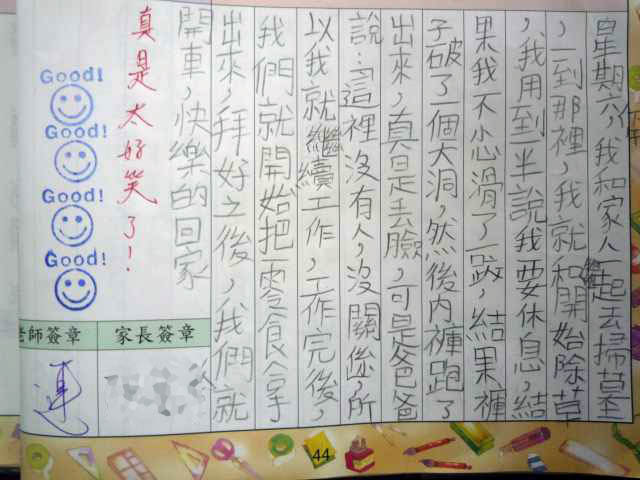 星期六，我和家人一起去掃墓
，一到那裡，我就和開始除草
，我用到一半說我要休息，結
果我不小心滑了一跤，結果褲
子破了一個大洞，然後內褲跑了
出來，真是丟臉，可是爸爸
說：這裡沒有人，沒關係，所
以我就繼續工作，工作完後，
我們就開始把零食拿
出來，拜好之後，我們就
開車，快樂的回家
真是太好笑了！
Good!
Good!
Good!
Good!
家長簽章
老師簽章
44